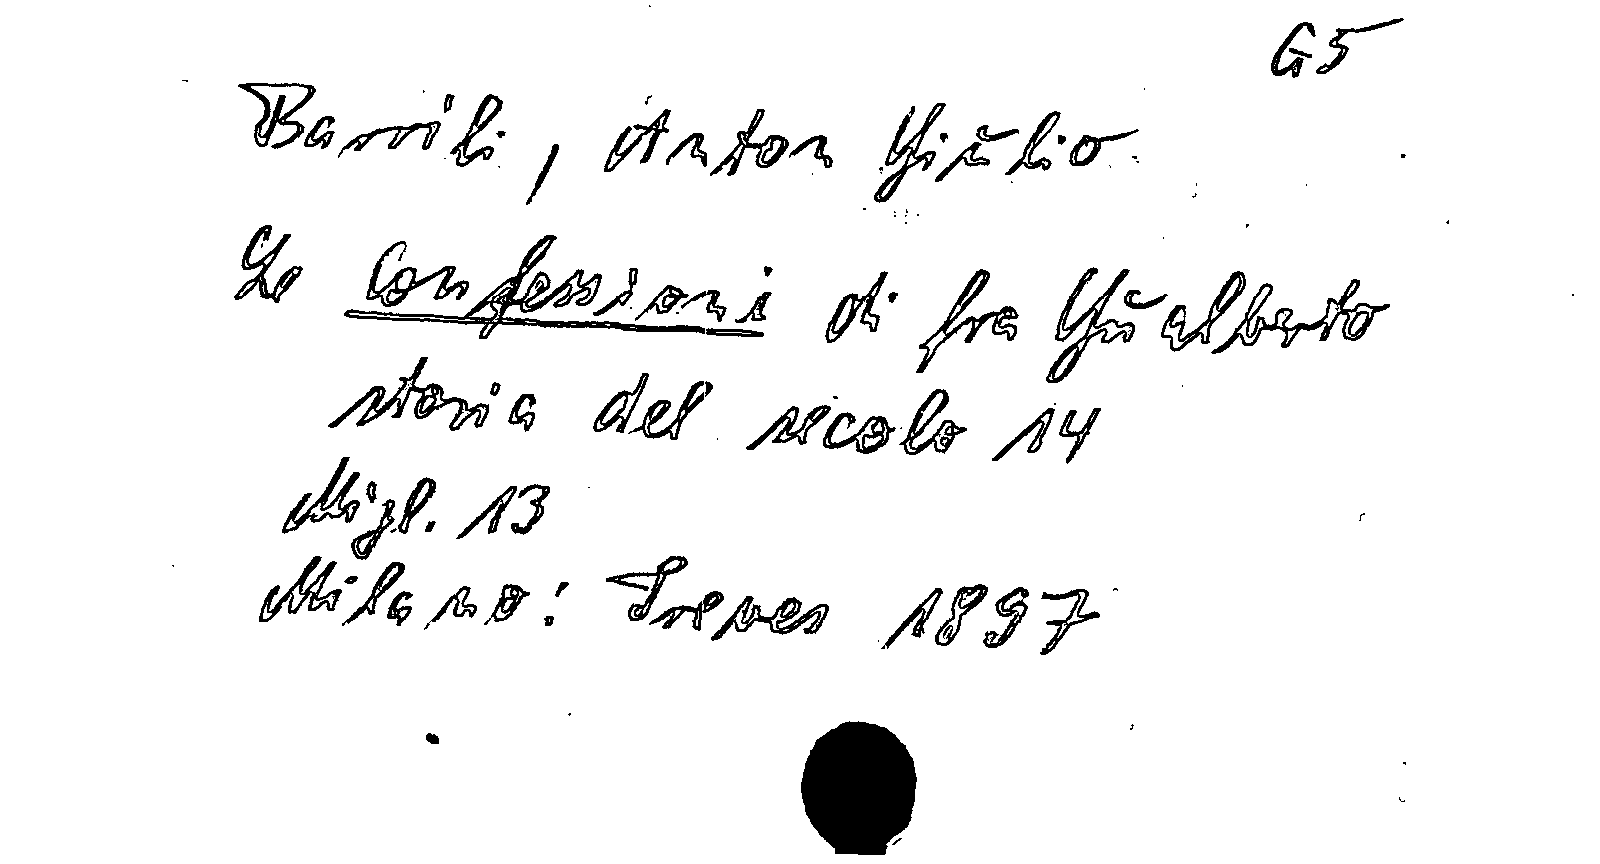 G5
Barrili, Anton Giulio
Le Confessioni di fra Gualberto
storia del secolo 14
Migl. 13
Milano: Treves 1897